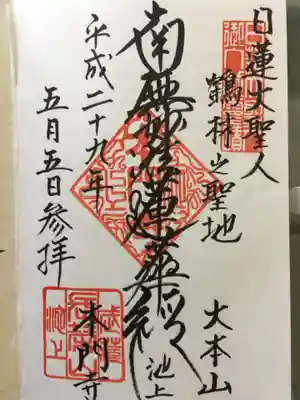 日蓮大聖人
鶴林之聖地
大本山
池上
南無妙法蓮華経
本門寺
平成二十九年
五月五日参拝